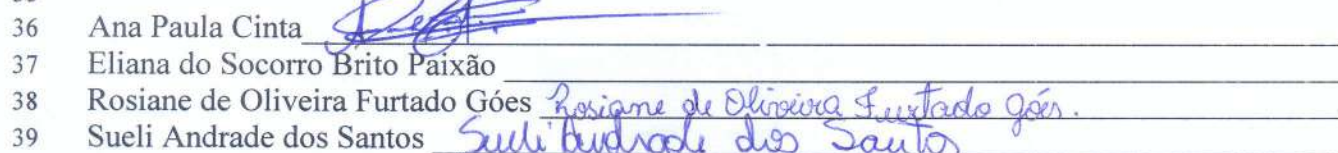 36 Ana Paula Cinta
37 Eliana do Socorro Brito Paixão
38 Rosiane de Oliveira Furtado Góes Rosiane de Oliveira Furtado Góes.
39 Sueli Andrade dos Santos Sueli Andrade dos Santos